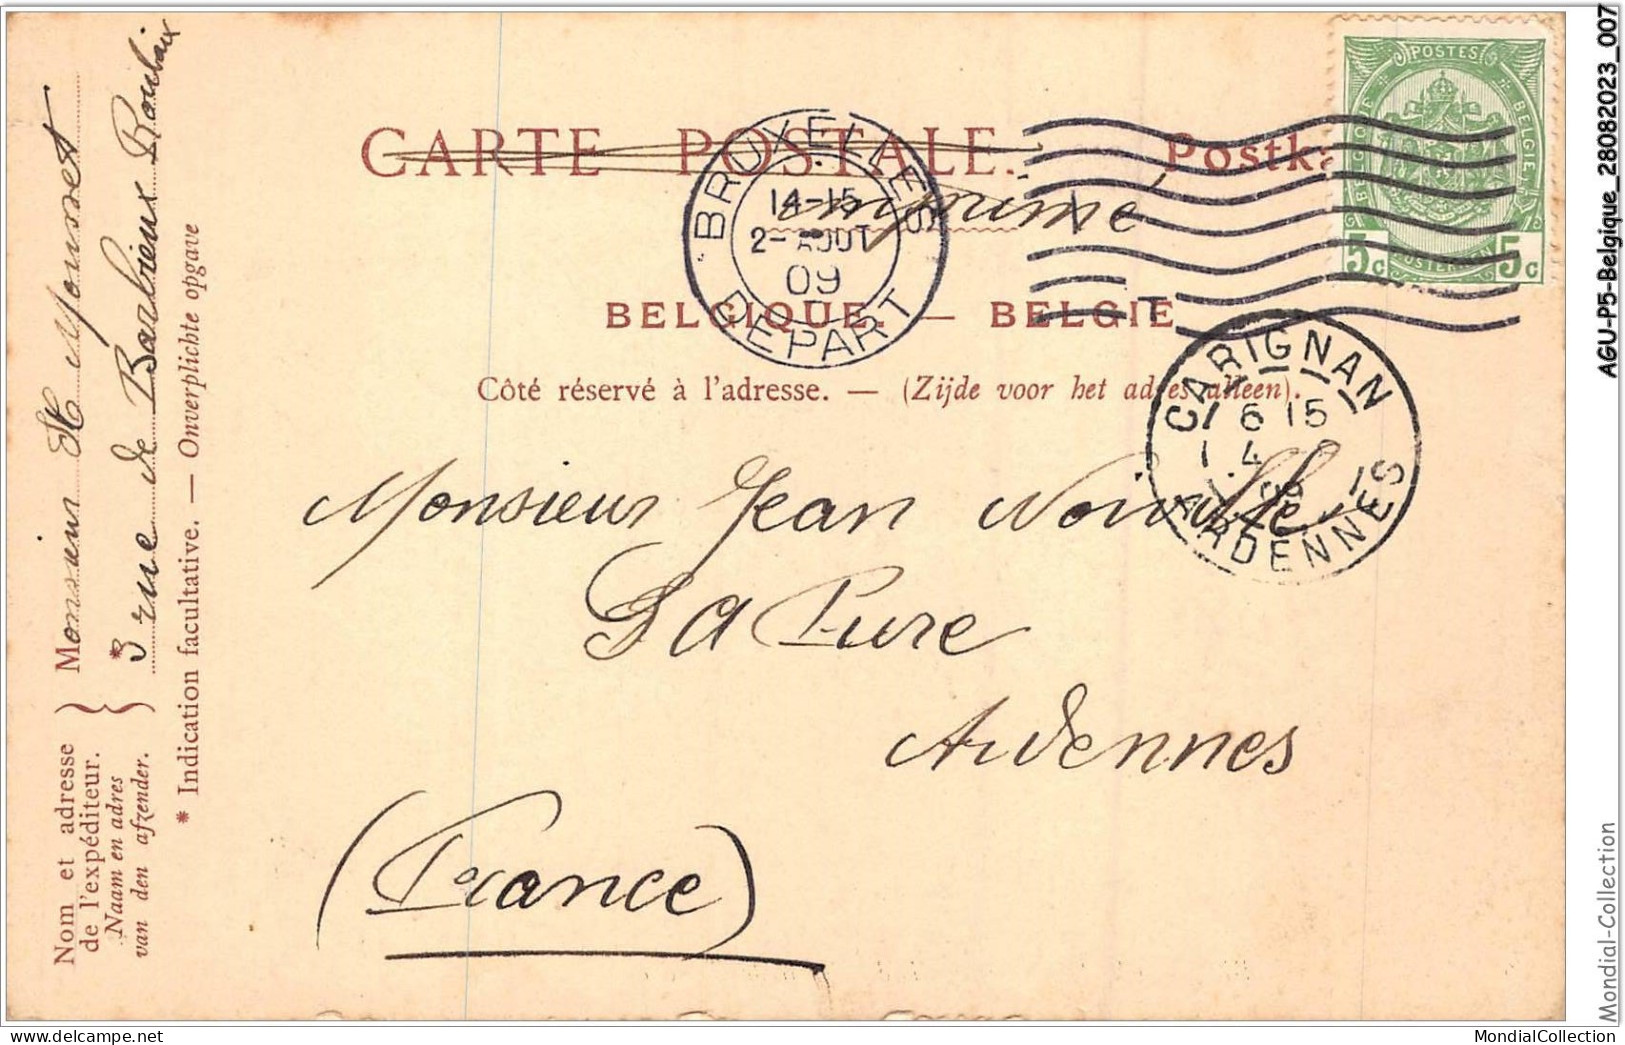 CARTE POSTALE. Postk
imprimé
BRUXELLES
14-15
2-AOUT
09
DEPART
POSTES
BELGIQUE
BELGIE
POSTERIJEN
5c 5c
BELGIQUE. — BELGIE
Côté réservé à l'adresse. — (Zijde voor het adres alleen).
CARIGNAN
6 15
4
09
ARDENNES
Monsieur Jean
La
Ardennes
(France)
Nom et adresse
de l'expéditeur.
Naam en adres
van den afzender.
Monsieur
* 3 rue de Barbieux Roubaix
* Indication facultative. — Onverplichte opgave
AGU-P5-Belgique_28082023_007
Mondial-Collection
www.delcampe.net
MondialCollection